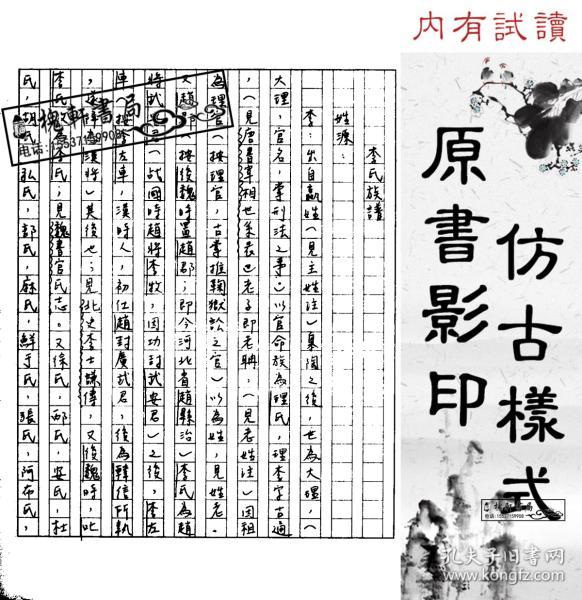 內有試讀
仿古樣式
原書影印
李氏族譜
姓源：
李：出自嬴姓（見主姓注）臯陶之後，世為大理，（
大理，官名，掌刑法之事）以官命族為理氏，理李字古通
，（見唐書宰相世系表）老子即老聃，（見老姓注）因祖
為理官（按理官，古掌推鞠獄訟之官）以為姓，見姓考。
又趙郡（按後魏時置趙郡；即今河北省趙縣治）李氏為趙
將武安君（戰國時趙將李牧，因功討武安君）之後，李左
車（按李左車，漢時人，初仕趙封廣武君，後為韓信所執
，遂歸為漢將）其後也；見北史李士謙傳，又後魏時，叱
李氏改為李氏；見魏書官氏志。又徐氏，邴氏，安氏，杜
氏，胡氏，弘氏，郭氏，麻氏，鮮于氏，張氏，阿布氏，
槐軒書局
电话：15537159908
槐軒書局
电话：15537159908
孔夫子旧书网
www.kongfz.com